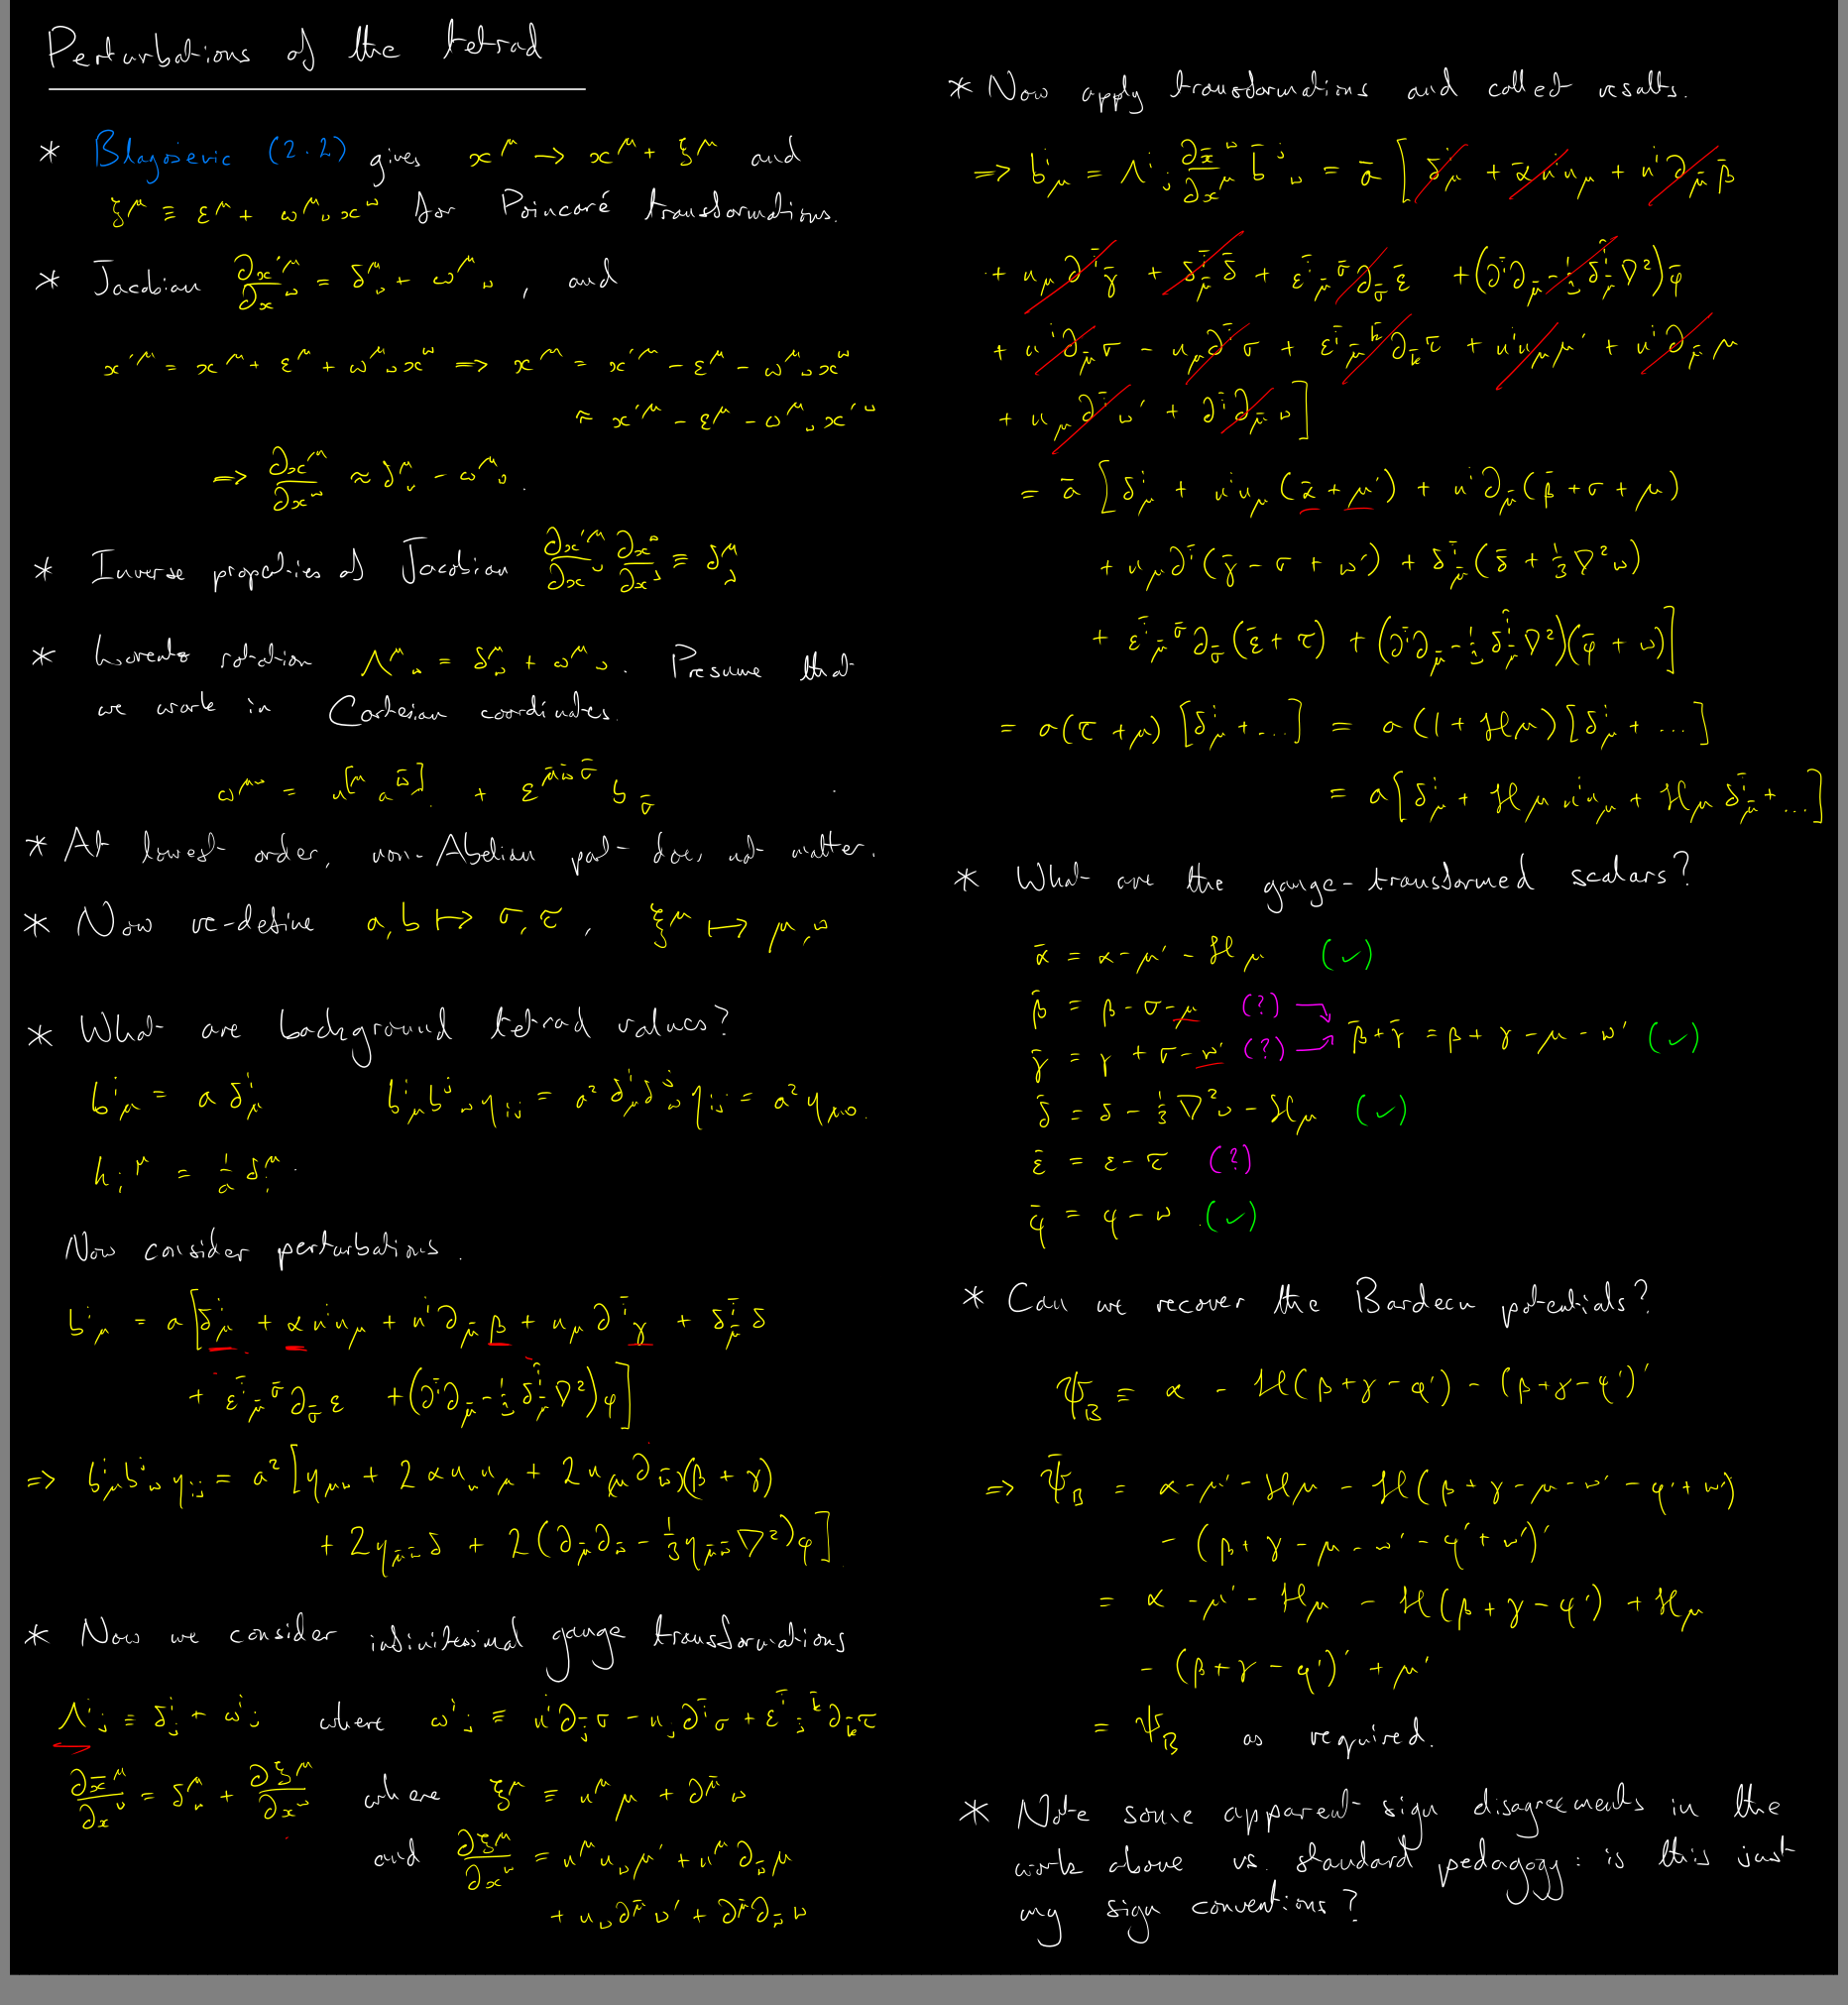 Perturbations of the tetrad
* Blagojevic (2.2) gives x^μ → x^μ + ξ^μ and
ξ^μ ≡ ε^μ + ω^μ_ν x^ν for Poincaré transformations.
* Jacobian ∂x'^μ/∂x^ν = δ^μ_ν + ω^μ_ν, and
x'^μ = x^μ + ε^μ + ω^μ_ν x^ν => x^μ = x'^μ - ε^μ - ω^μ_ν x^ν
≈ x'^μ - ε^μ - ω^μ_ν x'^ν
=> ∂x^μ/∂x'^ν ≈ δ^μ_ν - ω^μ_ν.
* Inverse properties of Jacobian ∂x'^μ/∂x^ν ∂x^ν/∂x'^λ ≡ δ^μ_λ
* Lorentz rotation Λ^μ_ν = δ^μ_ν + ω^μ_ν. Presume that
we work in Cartesian coordinates.
ω^{μν} = n^{[μ} a^{ν̄]} + ε^{μ̄ν̄σ̄} b_σ̄
* At lowest order, non-Abelian part does not matter.
* Now re-define a, b ↦ σ, τ, ξ^μ ↦ μ, ν
* What are background tetrad values?
b^i_μ = a δ^i_μ b^i_μ b^j_ν η_ij = a² δ^i_μ δ^j_ν η_ij = a² η_μν.
h_i^μ = 1/a δ_i^μ.
Now consider perturbations.
b^i_μ = a[δ^i_μ + α n^i n_μ + n^i ∂_μ̄ β + n_μ ∂^ī γ + δ^ī_μ̄ δ
+ ε^ī_μ̄^σ̄ ∂_σ̄ ε + (∂^ī ∂_μ̄ - 1/3 δ^ī_μ̄ ∇²)φ]
=> b^i_μ b^j_ν η_ij = a²[η_μν + 2α n_ν n_μ + 2n_(μ ∂_ν̄)(β + γ)
+ 2η_μ̄ν̄ δ + 2(∂_μ̄ ∂_ν̄ - 1/3 η_μ̄ν̄ ∇²)φ]
* Now we consider infinitesimal gauge transformations
Λ^i_j ≡ δ^i_j + ω^i_j where ω^i_j ≡ n^i ∂_j̄ σ - n_j ∂^ī σ + ε^ī_j̄^k̄ ∂_k̄ τ
∂x̄^μ/∂x^ν = δ^μ_ν + ∂ξ^μ/∂x^ν where ξ^μ ≡ n^μ μ + ∂^μ̄ ν
and ∂ξ^μ/∂x^ν = n^μ n_ν μ' + n^μ ∂_ν̄ μ
+ n_ν ∂^μ̄ ν' + ∂^μ̄ ∂_ν̄ ν
* Now apply transformations and collect results.
=> b^i_μ = Λ^i_j ∂x̄^ν/∂x^μ b̄^j_ν = ā[δ^i_μ + ᾱ n^i n_μ + n^i ∂_μ̄ β̄
+ n_μ ∂^ī γ̄ + δ^ī_μ̄ δ̄ + ε^ī_μ̄^σ̄ ∂_σ̄ ε̄ + (∂^ī ∂_μ̄ - 1/3 δ^ī_μ̄ ∇²)φ̄
+ n^i ∂_μ̄ σ - n_μ ∂^ī σ + ε^ī_μ̄^k̄ ∂_k̄ τ + n^i n_μ μ' + n^i ∂_μ̄ μ
+ n_μ ∂^ī ν' + ∂^ī ∂_μ̄ ν]
= ā[δ^i_μ + n^i n_μ (ᾱ + μ') + n^i ∂_μ̄ (β̄ + σ + μ)
+ n_μ ∂^ī (γ̄ - σ + ν') + δ^ī_μ̄ (δ̄ + 1/3 ∇²ν)
+ ε^ī_μ̄^σ̄ ∂_σ̄ (ε̄ + τ) + (∂^ī ∂_μ̄ - 1/3 δ^ī_μ̄ ∇²)(φ̄ + ν)]
= a(τ + μ)[δ^i_μ + ...] = a(1 + ℋμ)[δ^i_μ + ...]
= a[δ^i_μ + ℋμ n^i n_μ + ℋμ δ^ī_μ̄ + ...]
* What are the gauge-transformed scalars?
ᾱ = α - μ' - ℋμ (✓)
β̄ = β - σ - μ (?)
γ̄ = γ + σ - ν' (?) → β̄ + γ̄ = β + γ - μ - ν' (✓)
δ̄ = δ - 1/3 ∇²ν - ℋμ (✓)
ε̄ = ε - τ (?)
φ̄ = φ - ν (✓)
* Can we recover the Bardeen potentials?
Ψ_B ≡ α - ℋ(β + γ - φ') - (β + γ - φ')'
=> Ψ̄_B = α - μ' - ℋμ - ℋ(β + γ - μ - ν' - φ' + ν')
- (β + γ - μ - ν' - φ' + ν')'
= α - μ' - ℋμ - ℋ(β + γ - φ') + ℋμ
- (β + γ - φ')' + μ'
= Ψ_B as required.
* Note some apparent sign disagreements in the
work above vs. standard pedagogy: is this just
my sign conventions?